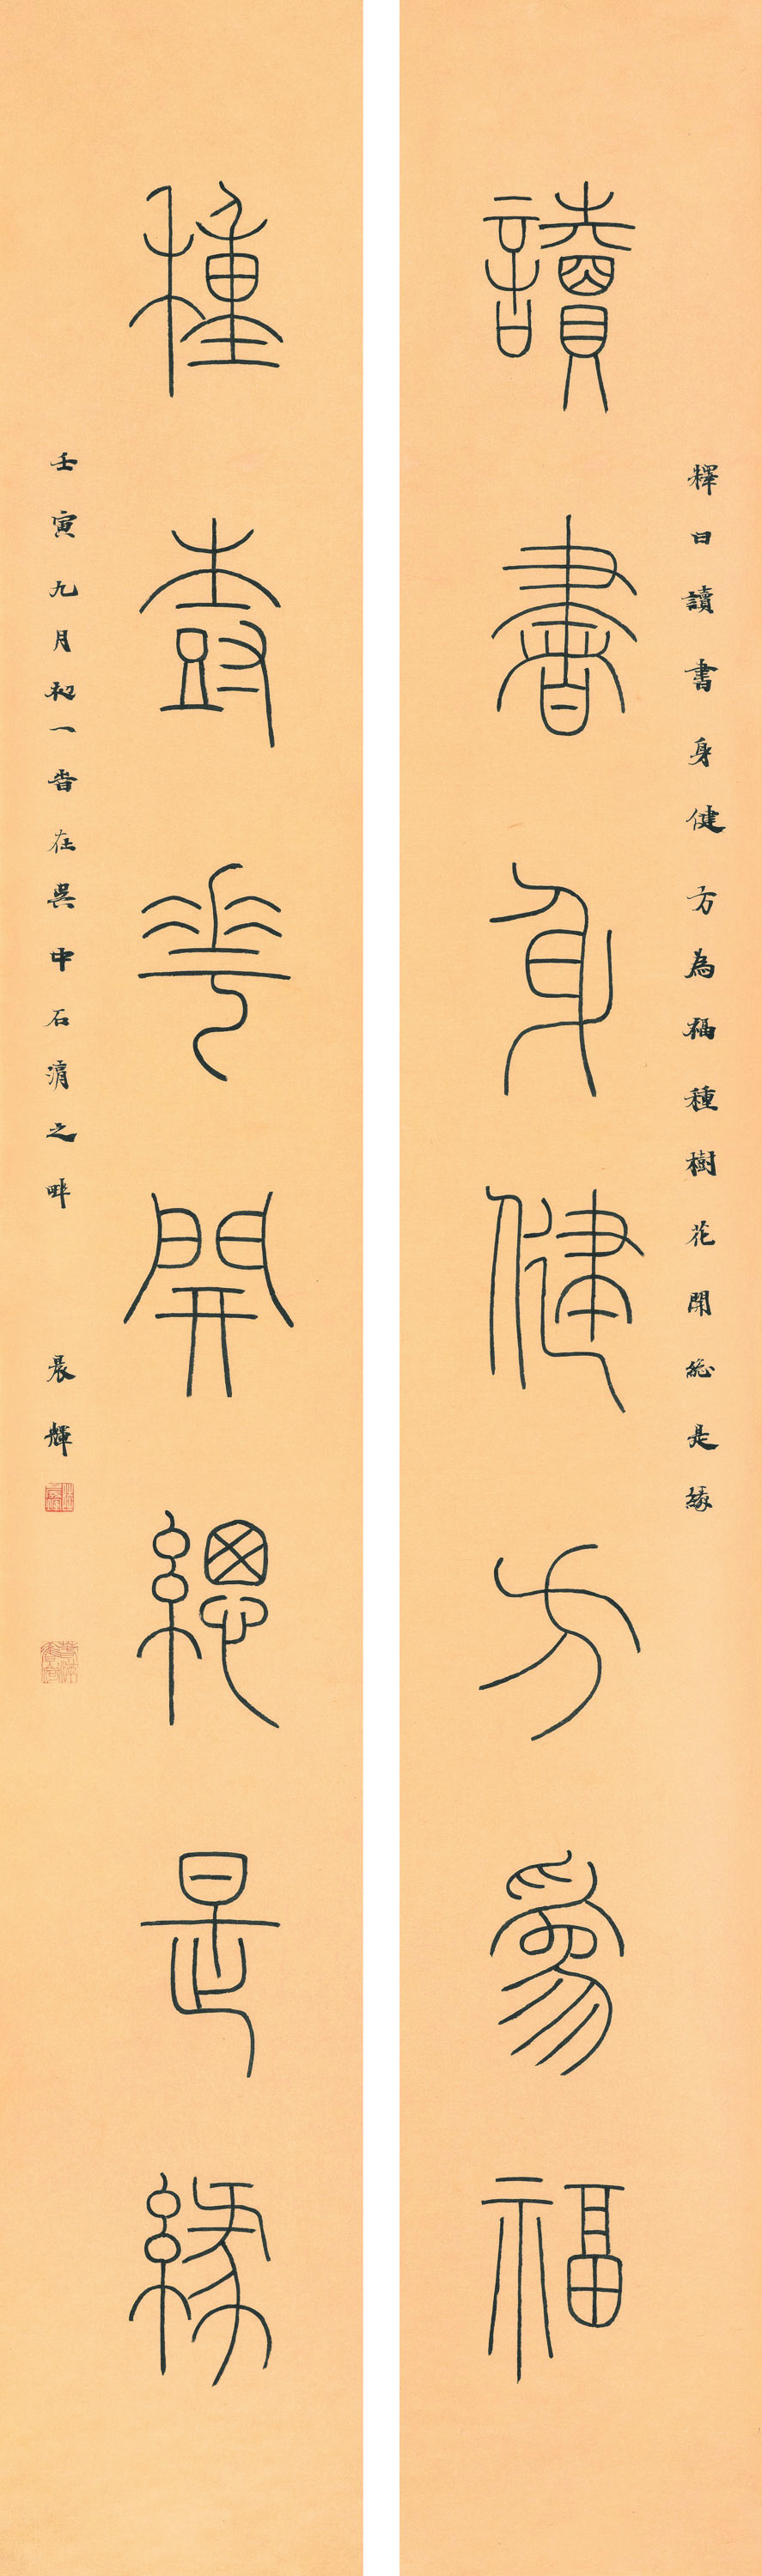 釋曰讀書身健方為福種樹花開總是緣
讀書身健方為福
種樹華開總是緣
壬寅九月初一昔在吳中石湖之畔
晨輝